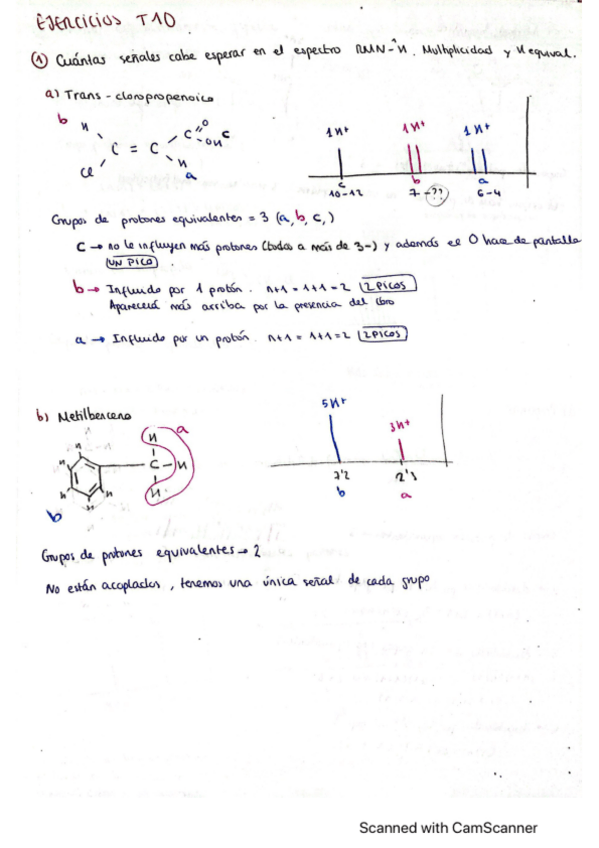 EJERCICIOS T10
① Cuántas señales cabe esperar en el espectro RMN-¹H. Multiplicidad y H equival.
a) Trans-cloropropenoico
b H
O
C OH c
C = C
Cl H
a
1H+ 1H+ 1H+
c b a
10-12 7-?? 6-4
Grupos de protones equivalentes = 3 (a, b, c,)
C → no le influyen más protones (todos a más de 3-) y además el O hace de pantalla
UN PICO
b → Influido por 1 protón. n+1 = 1+1 = 2 2 PICOS
Aparecerá más arriba por la presencia del cloro
a → Influido por un protón. n+1 = 1+1 = 2 2 PICOS
b) Metilbenceno
5H+
3H+
a
H
C - H
H
H H H H H
b
7'2 2'3
b a
Grupos de protones equivalentes → 2
No están acoplados, tenemos una única señal de cada grupo
Scanned with CamScanner